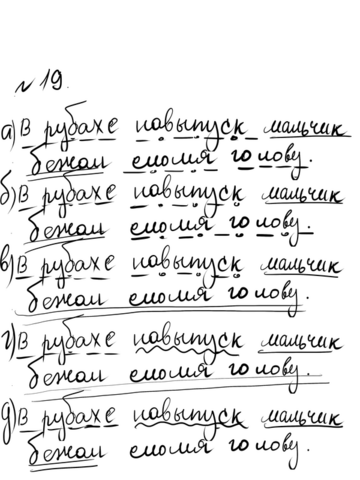 № 19.
а) В рубахе навыпуск мальчик
бежал сломя голову.
б) В рубахе навыпуск мальчик
бежал сломя голову.
в) В рубахе навыпуск мальчик
бежал сломя голову.
г) В рубахе навыпуск мальчик
бежал сломя голову.
д) В рубахе навыпуск мальчик
бежал сломя голову.